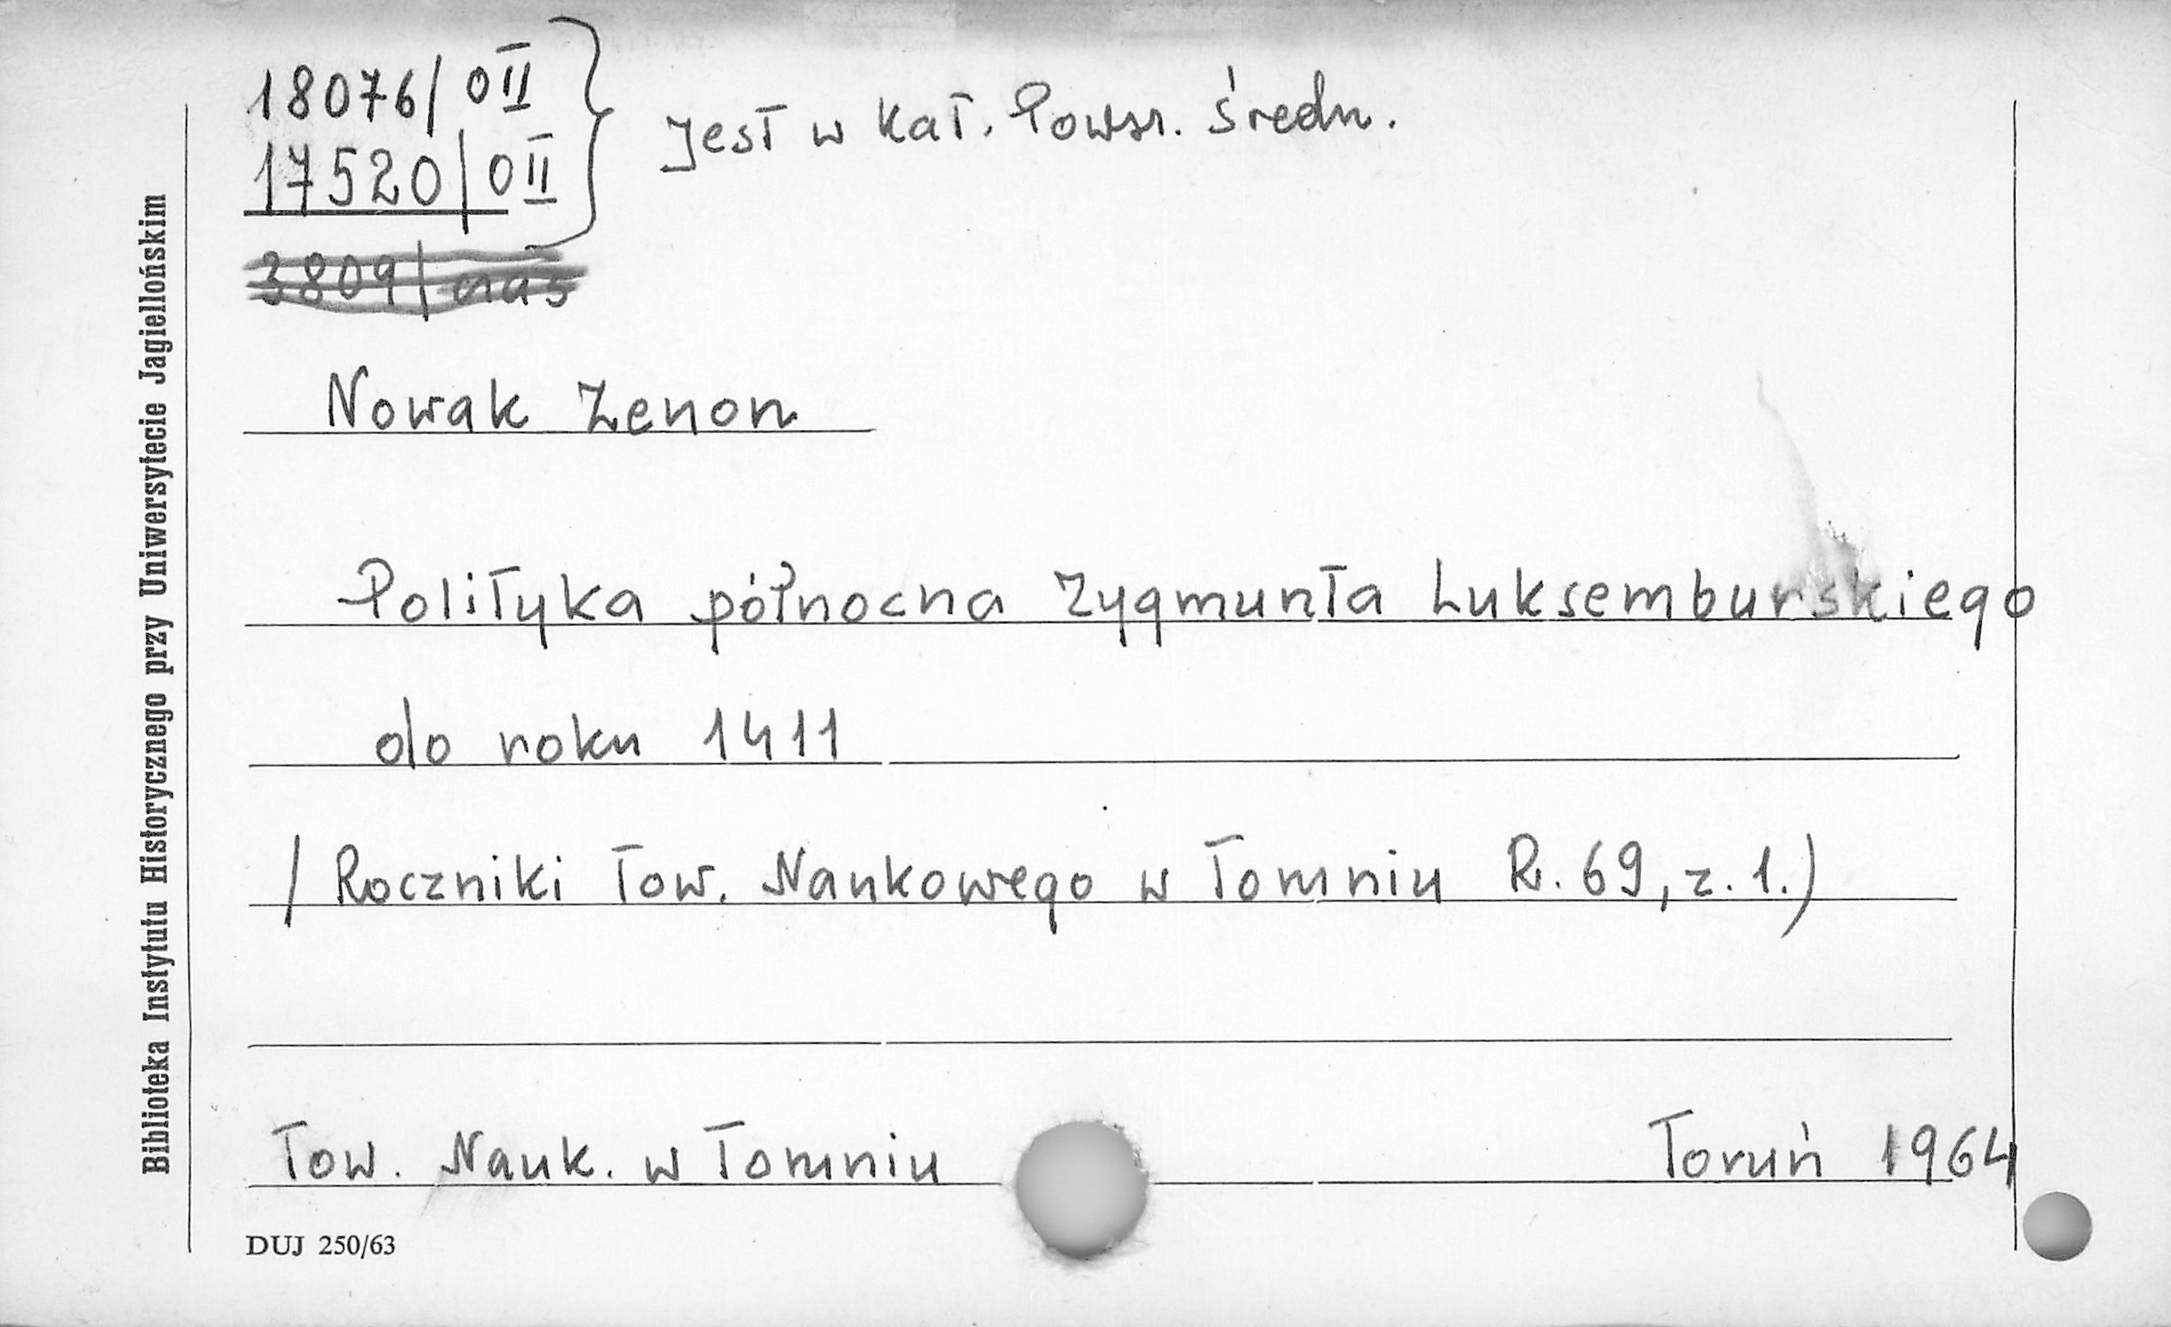 18076/OII
17520/OII
Jest w Kat. Powsz. Średn.
3809/nas
Nowak Zenon
Polityka północna Zygmunta Luksemburskiego
do roku 1411
/Roczniki Tow. Naukowego w Toruniu R. 69, z. 1.)
Tow. Nauk. w Toruniu
Toruń 1964
DUJ 250/63
Biblioteka Instytutu Historycznego przy Uniwersytecie Jagiellońskim